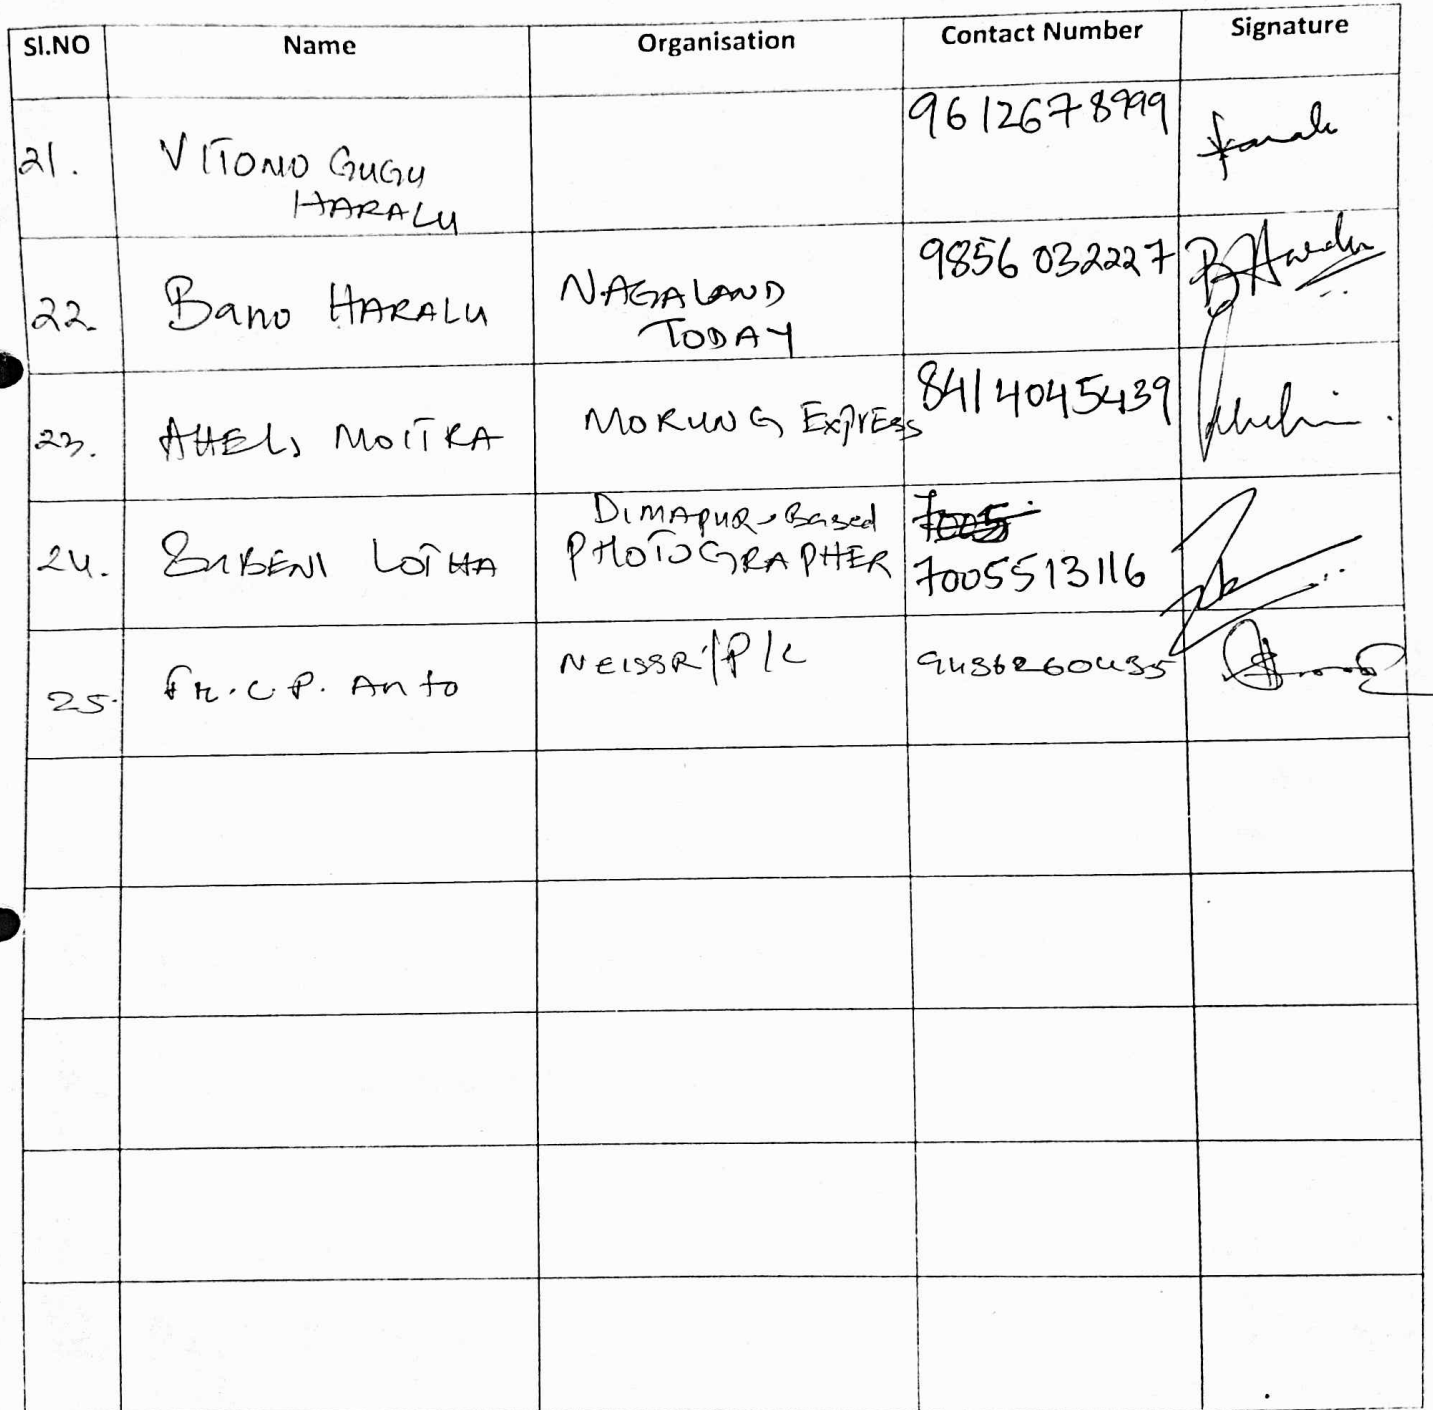 Sl.NO Name Organisation Contact Number Signature
21. VITONO GUGU HARALU 9612678999
22. Bano HARALU NAGALAND TODAY 9856032227
23. AHELI MOITRA MORUNG ExprEss 8414045439
24. LOTHA DIMAPUR-Based PHOTOGRAPHER 7005513116
25. Fr. C.P. Anto NEISSR/P/C 9436260435